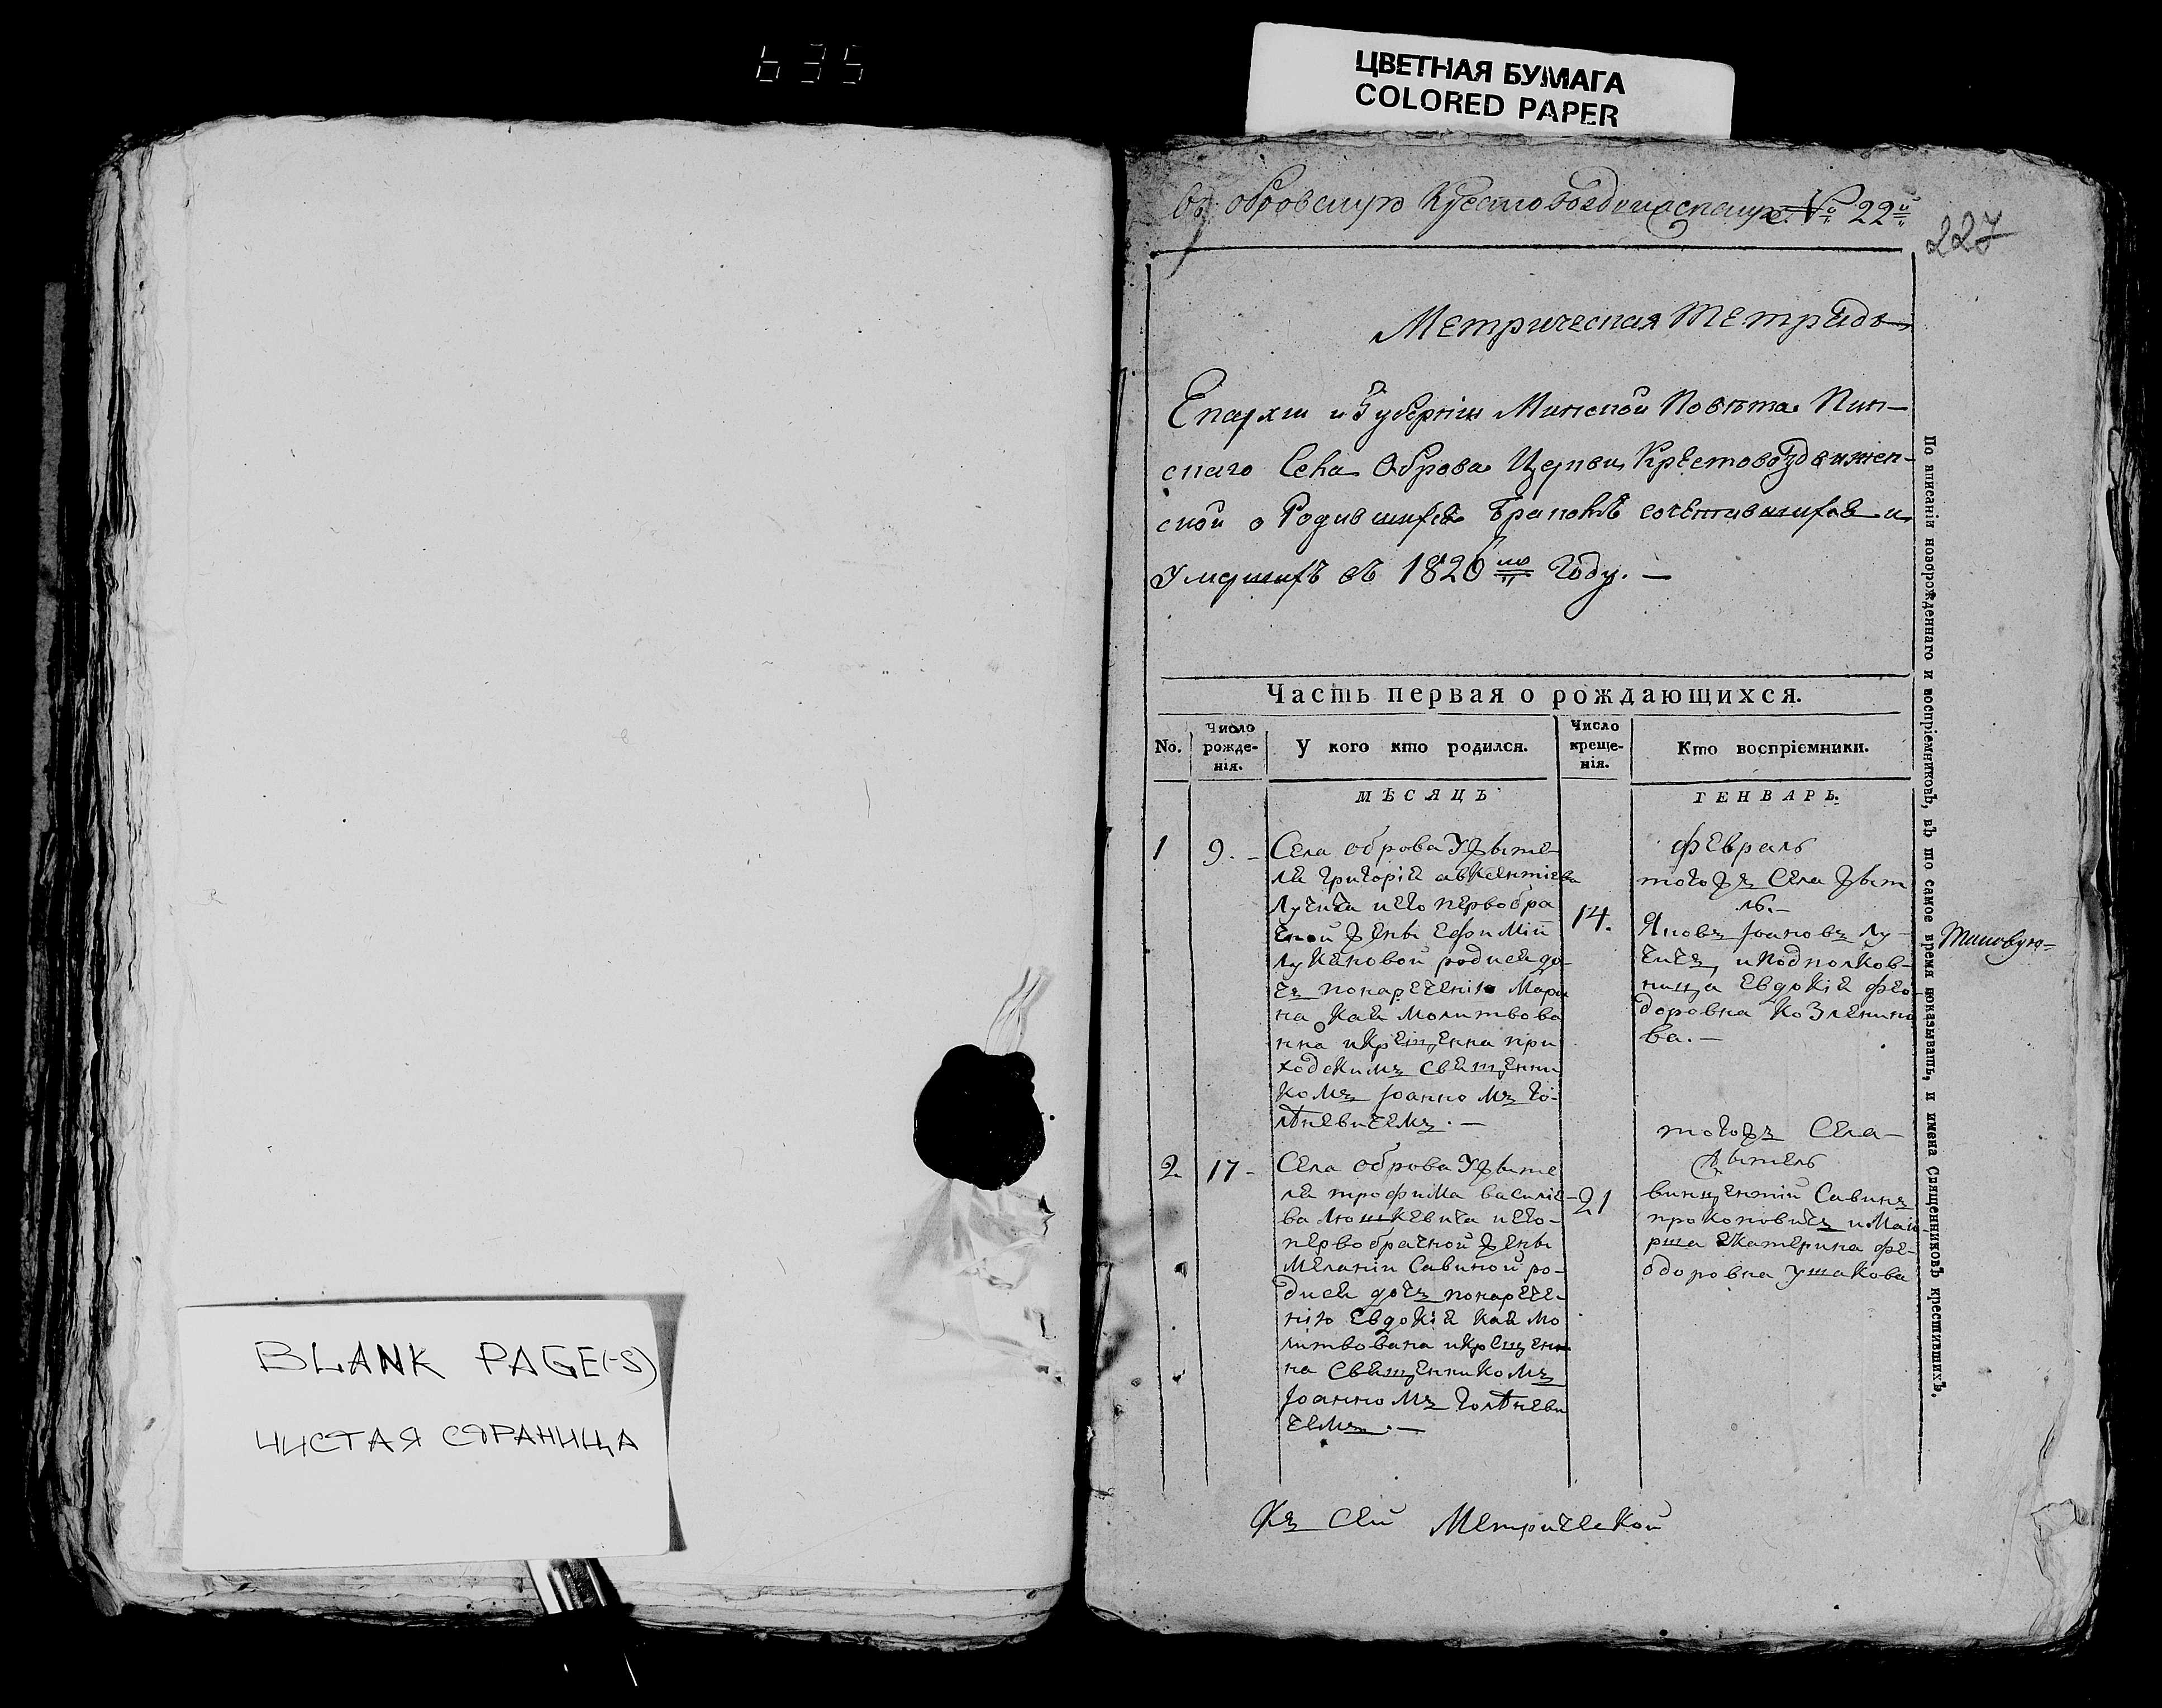 635
ЦВЕТНАЯ БУМАГА
COLORED PAPER
въ обровскую Крестовоздвиженскую № 22й
227
Метрическая Тетрадь
Епархіи и Губерніи Минской Повѣта Пин-
скаго Села Оброва Церкви Крестовоздвижен-
ской о Родившихся Бракомъ сочетавшихся и
Умершихъ въ 1826мъ Году. —
Часть первая о рождающихся.
No.
Число рожде- нія.
У кого кто родился.
Число креще- нія.
Кто воспріемники.
МѢСЯЦЪ
ГЕНВАРЬ.
1
9. -
Села оброва У жите
ля григорія авксентіева
лучича и его первобра
чной жены Ефиміи
лукановой родися до-
чъ понареченію Мари
на Кая Молитвова
нна икрещенна при
ходскимъ священни
комъ Іоанномъ Го-
лѣневичемъ. —
14.
февраль
тогожъ Села жит
ль. —
Яковъ Іоановъ лу-
чичъ, и подполков-
ница Евдокія фео
доровна Козленико
ва. —
2
17 -
Села оброва У жите
ля трофима василіе-
ва Люшкевича и его-
первобрачной жены
Меланіи Савиной ро-
дися дочъ понарече-
нію Евдокія Кая мо
литвована икрещен
на Священникомъ
Іоанномъ Голѣневи
чемъ. —
21
тогожъ Села —
житель
викентій Савинъ
прокоповичъ и Маіо
рша Екатерина фе-
одоровна ушакова
Къ сей Метрической
По вписаніи новорожденнаго и воспріемниковъ, въ то самое время показывать, и имена Священниковъ крестившихъ.
BLANK PAGE(-S)
ЧИСТАЯ СТРАНИЦА